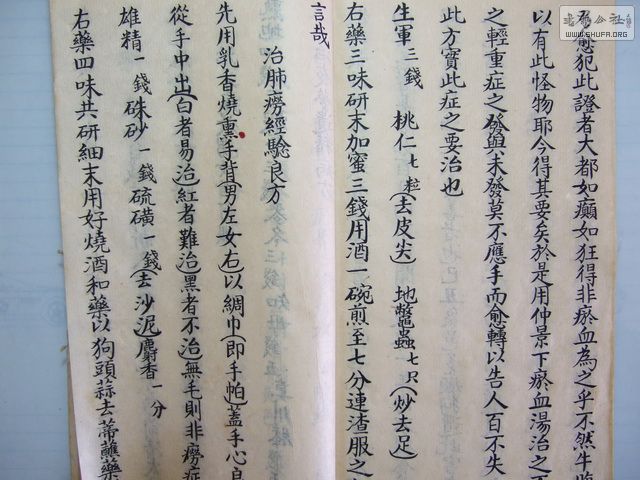 書法公社
WWW.SHUFA.ORG
愈犯此證者大都如癲如狂得非瘀血為之乎不然牛
以有此怪物耶今得其要矣於是用仲景下瘀血湯治之
之輕重症之發與未發莫不應手而愈轉以告人百不失
此方實此症之要治也
生軍三錢 桃仁七粒(去皮尖) 地鼈蟲七只(炒去足)
右藥三味研末加蜜三錢用酒一碗煎至七分連渣服之
言哉
治肺癆經驗良方
先用乳香燒熏手背(男左女右)以綢巾(即手帕)蓋手心
從手中出(白者易治紅者難治黑者不治)無毛則非癆症
雄精一錢硃砂一錢硫磺一錢(去沙泥)麝香一分
右藥四味共研細末用好燒酒和藥以狗頭蒜去蒂蘸藥